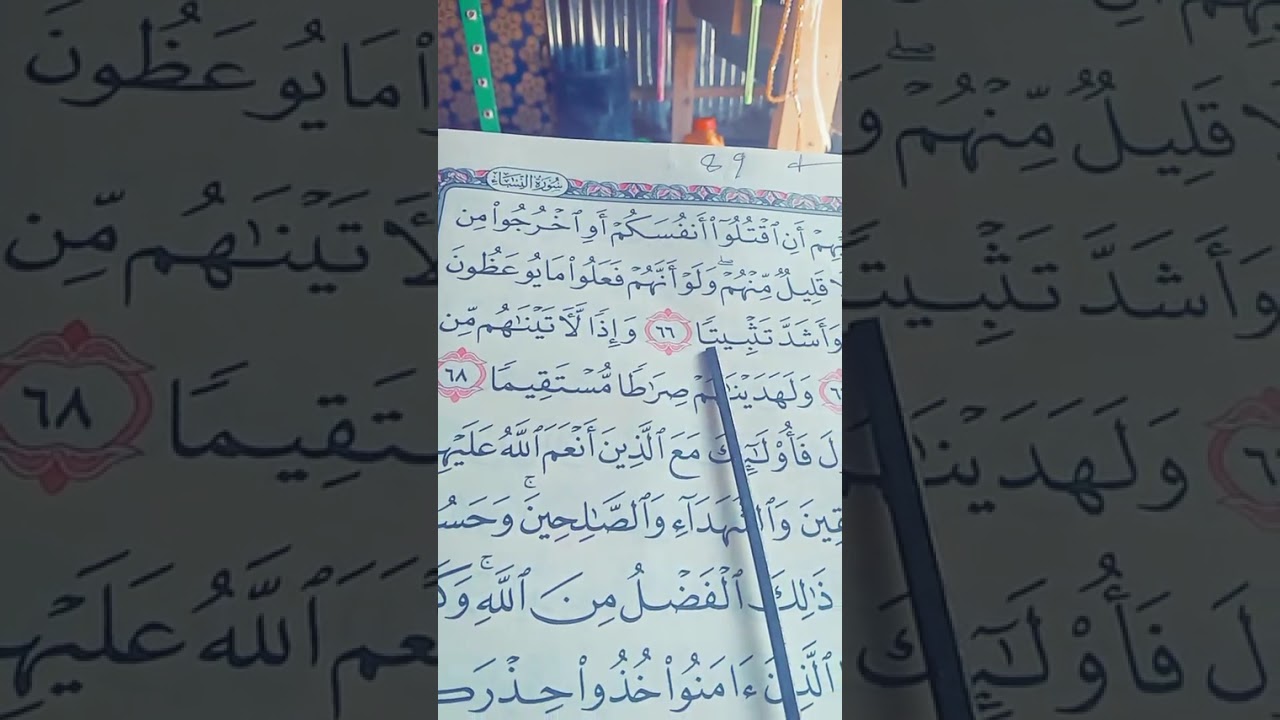 89
سُورَةُ النِّسَاءِ
أَنِ ٱقۡتُلُوٓاْ أَنفُسَكُمۡ أَوِ ٱخۡرُجُواْ مِن
قَلِيلٞ مِّنۡهُمۡۖ وَلَوۡ أَنَّهُمۡ فَعَلُواْ مَا يُوعَظُونَ
وَأَشَدَّ تَثۡبِيتٗا ٦٦ وَإِذٗا لَّأٓتَيۡنَٰهُم مِّن
وَلَهَدَيۡنَٰهُمۡ صِرَٰطٗا مُّسۡتَقِيمٗا ٦٨
فَأُوْلَٰٓئِكَ مَعَ ٱلَّذِينَ أَنۡعَمَ ٱللَّهُ عَلَيۡهِ
وَٱلشُّهَدَآءِ وَٱلصَّٰلِحِينَۚ وَحَسُ
ذَٰلِكَ ٱلۡفَضۡلُ مِنَ ٱللَّهِۚ وَكَ
ٱلَّذِينَ ءَامَنُواْ خُذُواْ حِذۡرَك